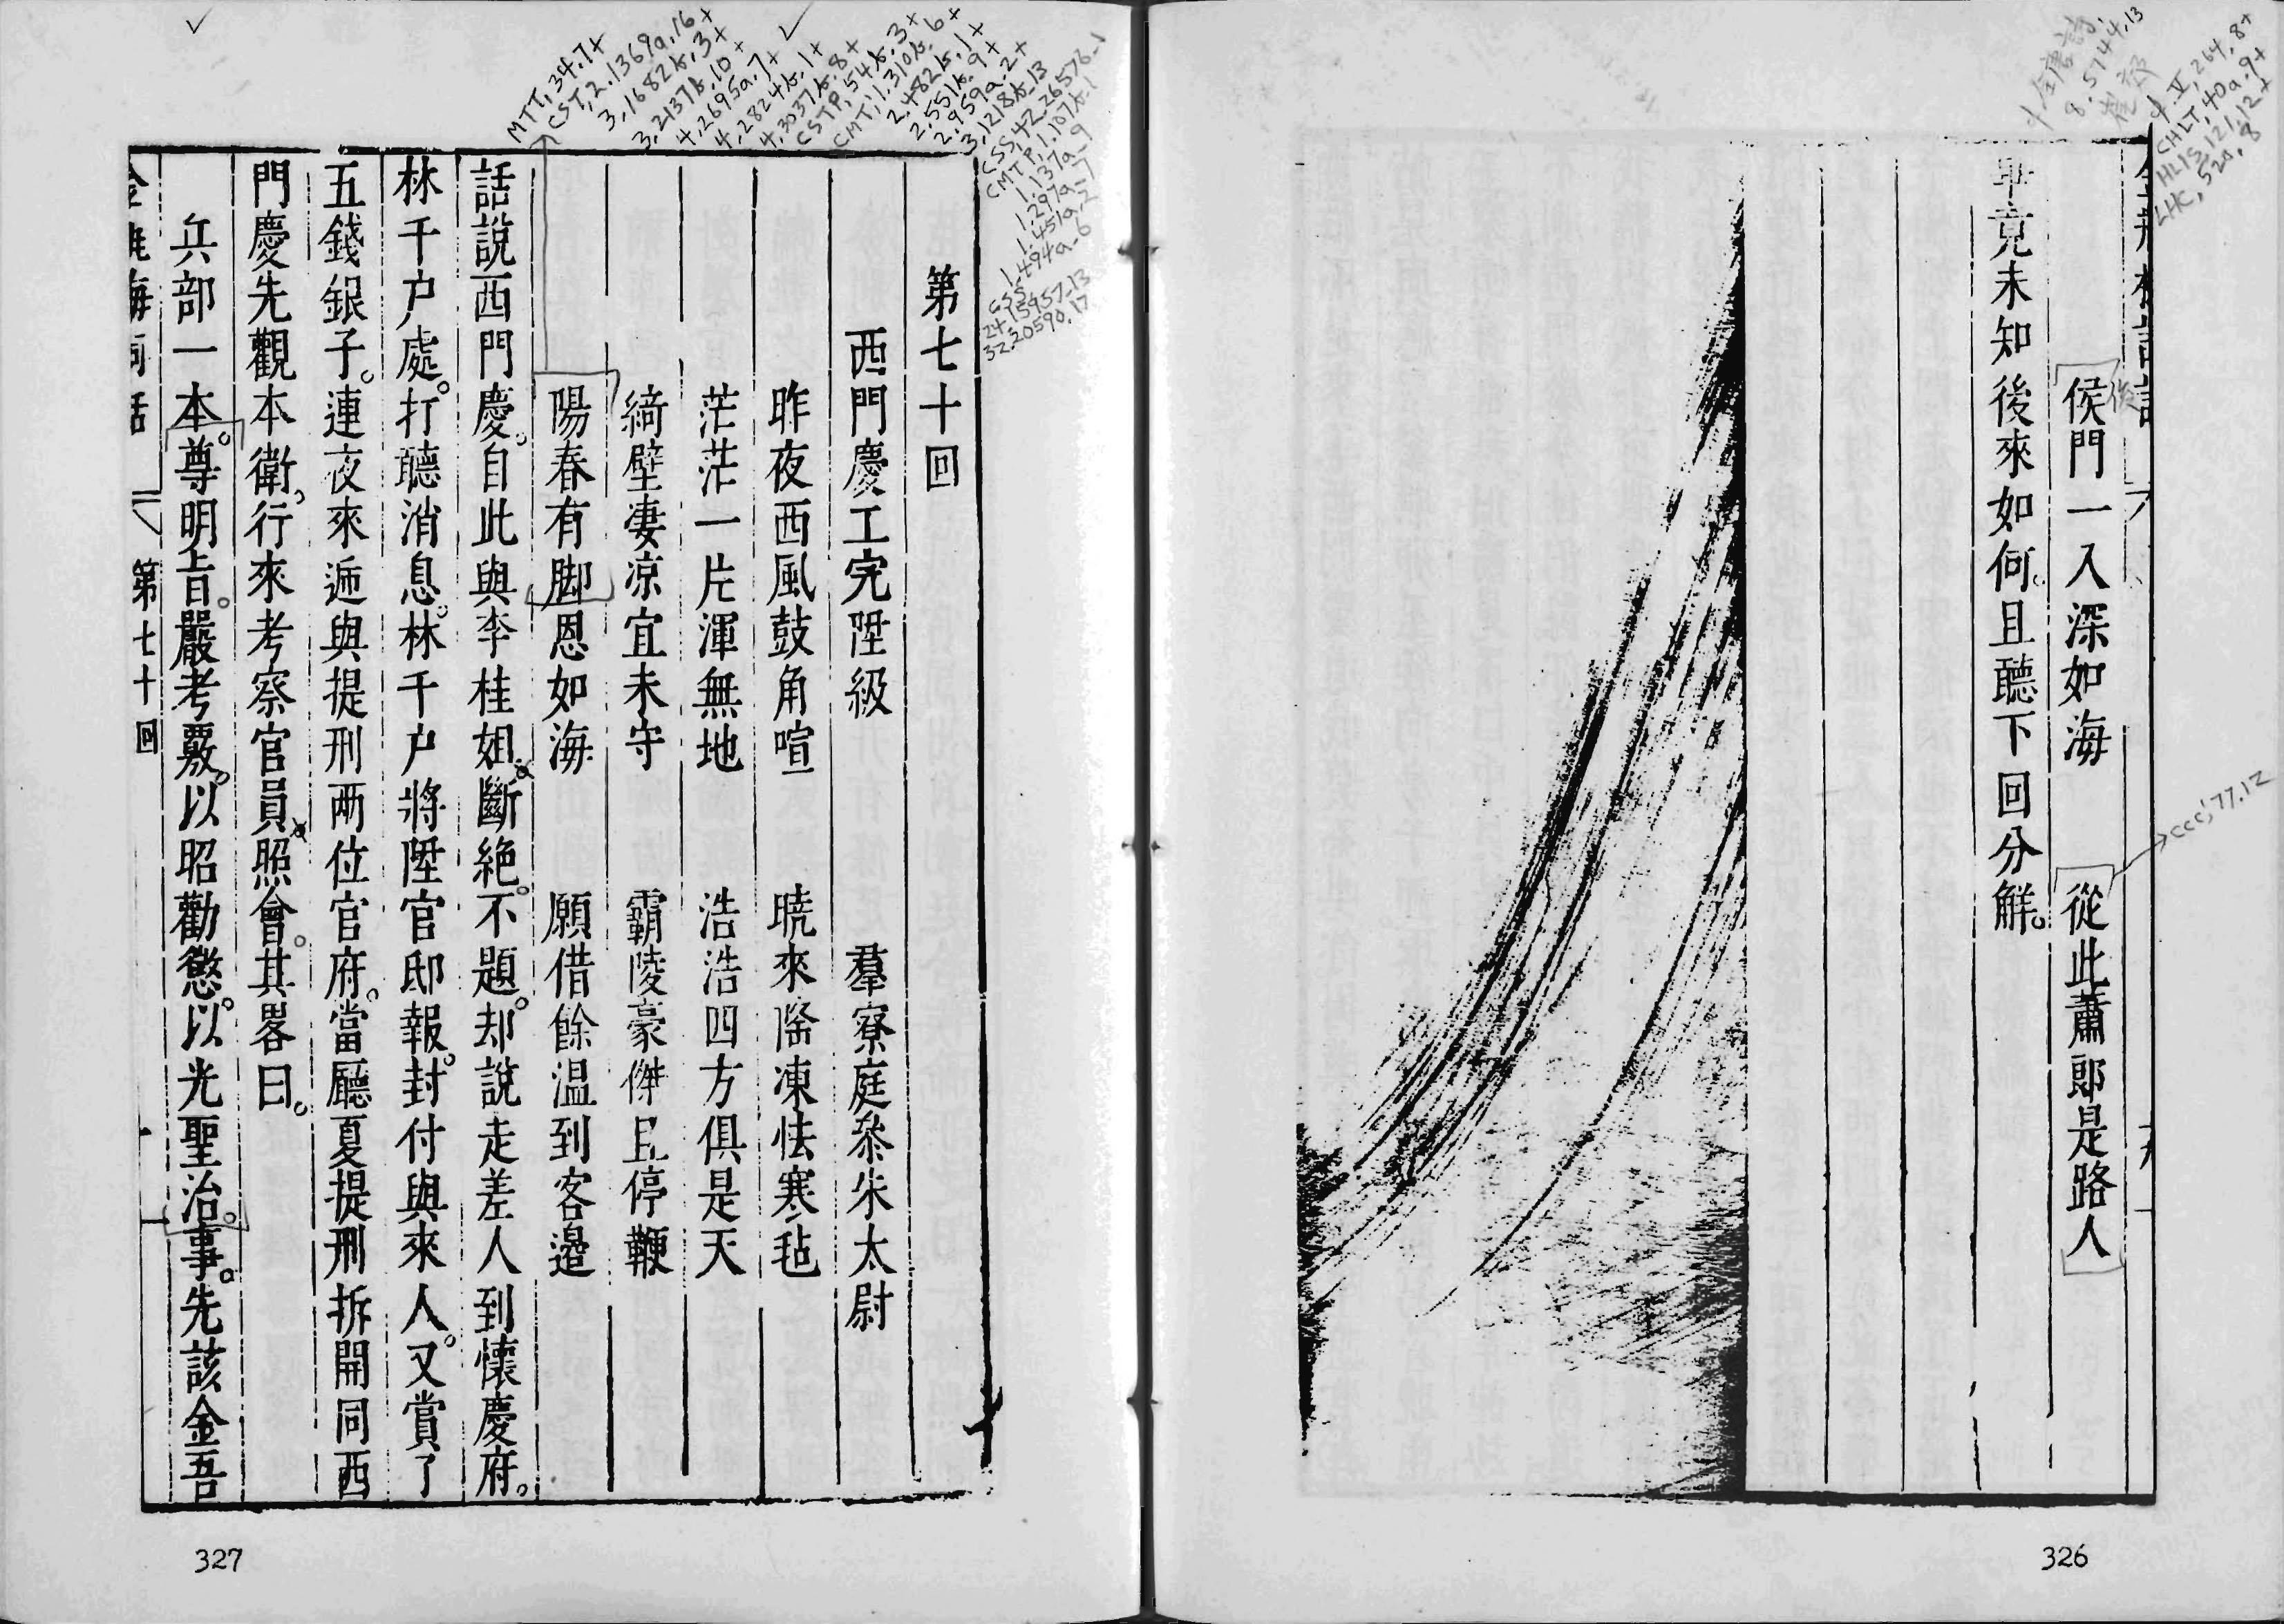 侯門一入深如海　從此蕭郎是路人
畢竟未知後來如何。且聽下回分解。
後
→CCC, 77.12
326
第七十回
西門慶工完陞級　羣寮庭叅朱太尉
昨夜西風鼓角喧　曉來隂凍怯寒毡
茫茫一片渾無地　浩浩四方俱是天
綺壁凄凉宜未守　霸陵豪傑且停鞭
陽春有脚恩如海　願借餘温到客邉
話說西門慶。自此與李桂姐。斷絶。不題。却說走差人到懐慶府。
林千户處。打聽消息。林千户將陞官邸報。封付與來人。又賞了
五錢銀子。連夜來逓與提刑兩位官府。當廳夏提刑拆開同西
門慶先觀本衛。行來考察官員。照會。其畧曰。
兵部一本。尊明旨。嚴考覈。以昭勸懲。以光聖治。事。先該金吾
第七十回
MTT, 34.7+
CST, 2.1369a.16+
3.1682b.3+
3.2137b.10+
4.2695a.7+
4.2824b.1+
4.3037b.8+
CSTP, 54b.3+
CMT, 1.310b.6+
2.482b.1+
2.551b.9+
2.959a.2+
3.1218b-13
CSS, 42.26576-1
CMTP, 1.107b.1
1.137a-9
1.297a-7
1.451a.2
1.494a-6
GSS,
24.15957-13
32.20590.17
327